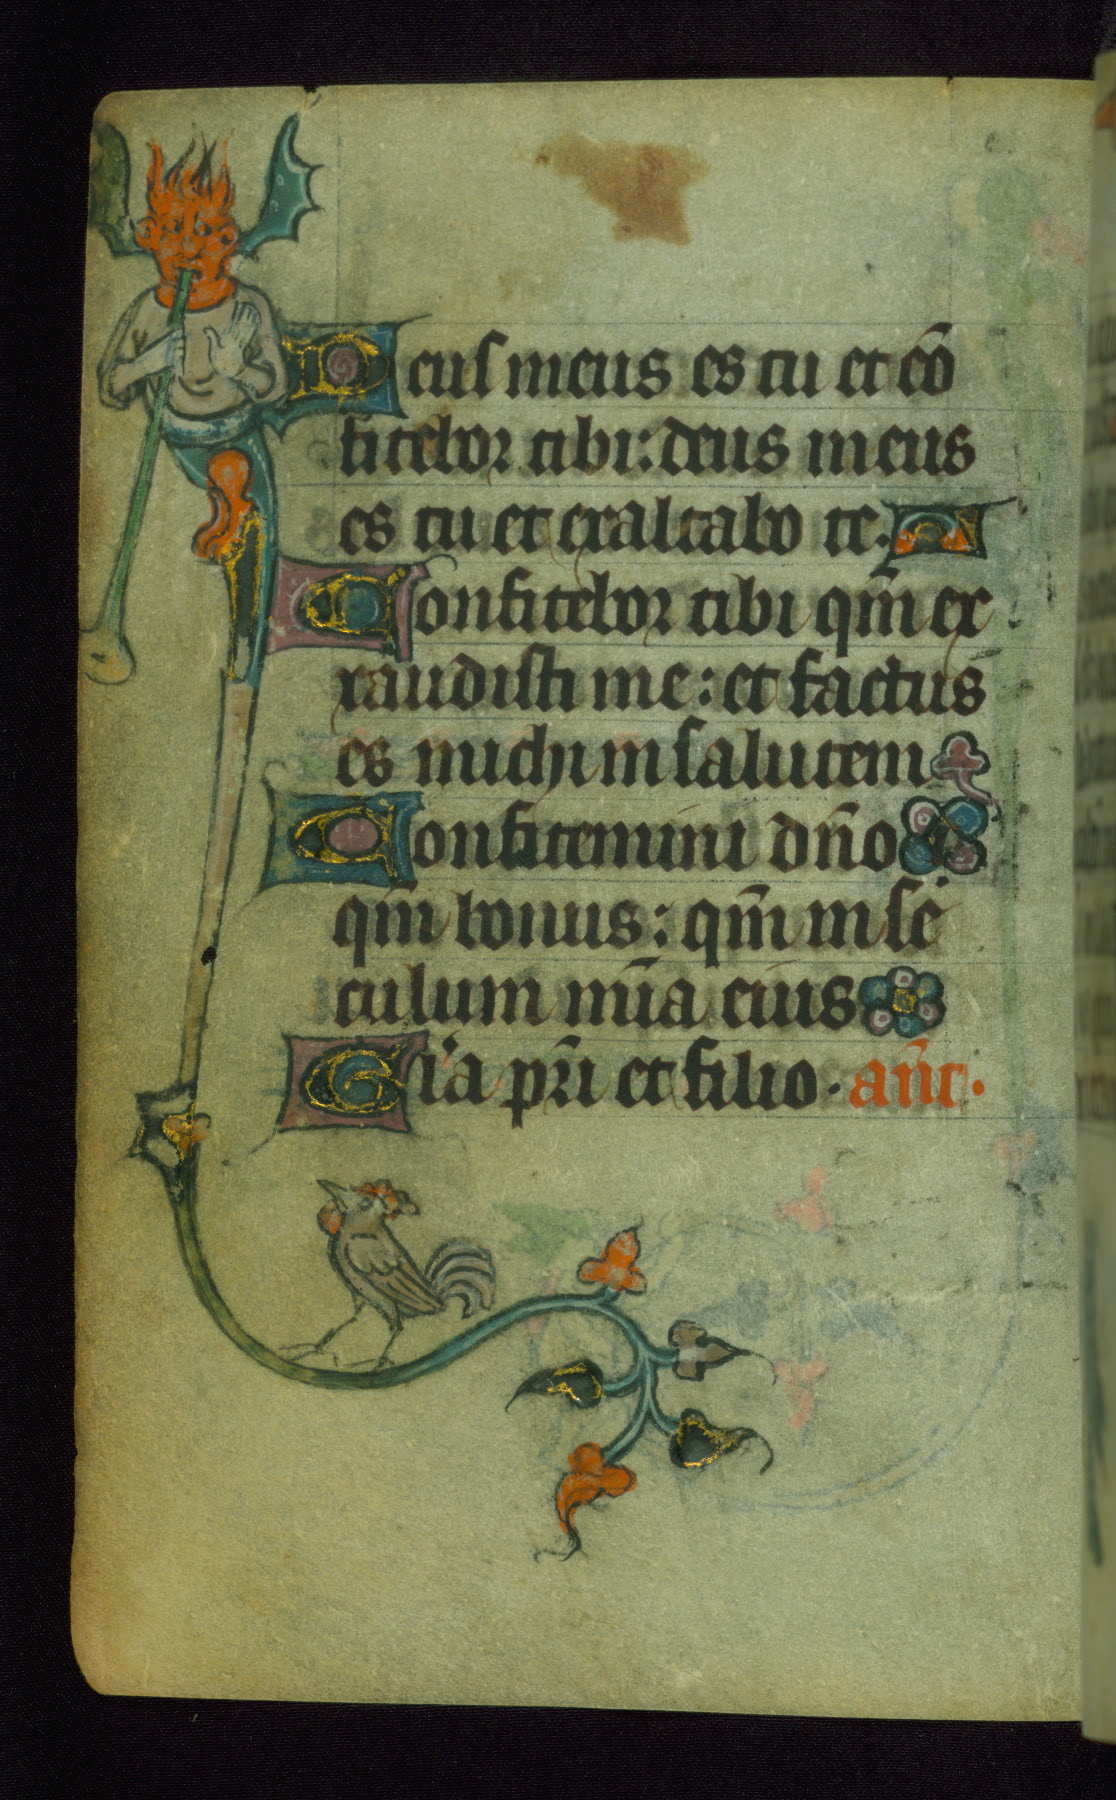 Deus meus es tu et cō
fitebor tibi: deus meus
es tu et exaltabo te.
Confitebor tibi qm̄ ex
xaudisti me: et factus
es michi in salutem
Confitemini dn̄o
qm̄ bonus: qm̄ in se
culum mīa eius
Gl'a pr̄i et filio. an̄t.